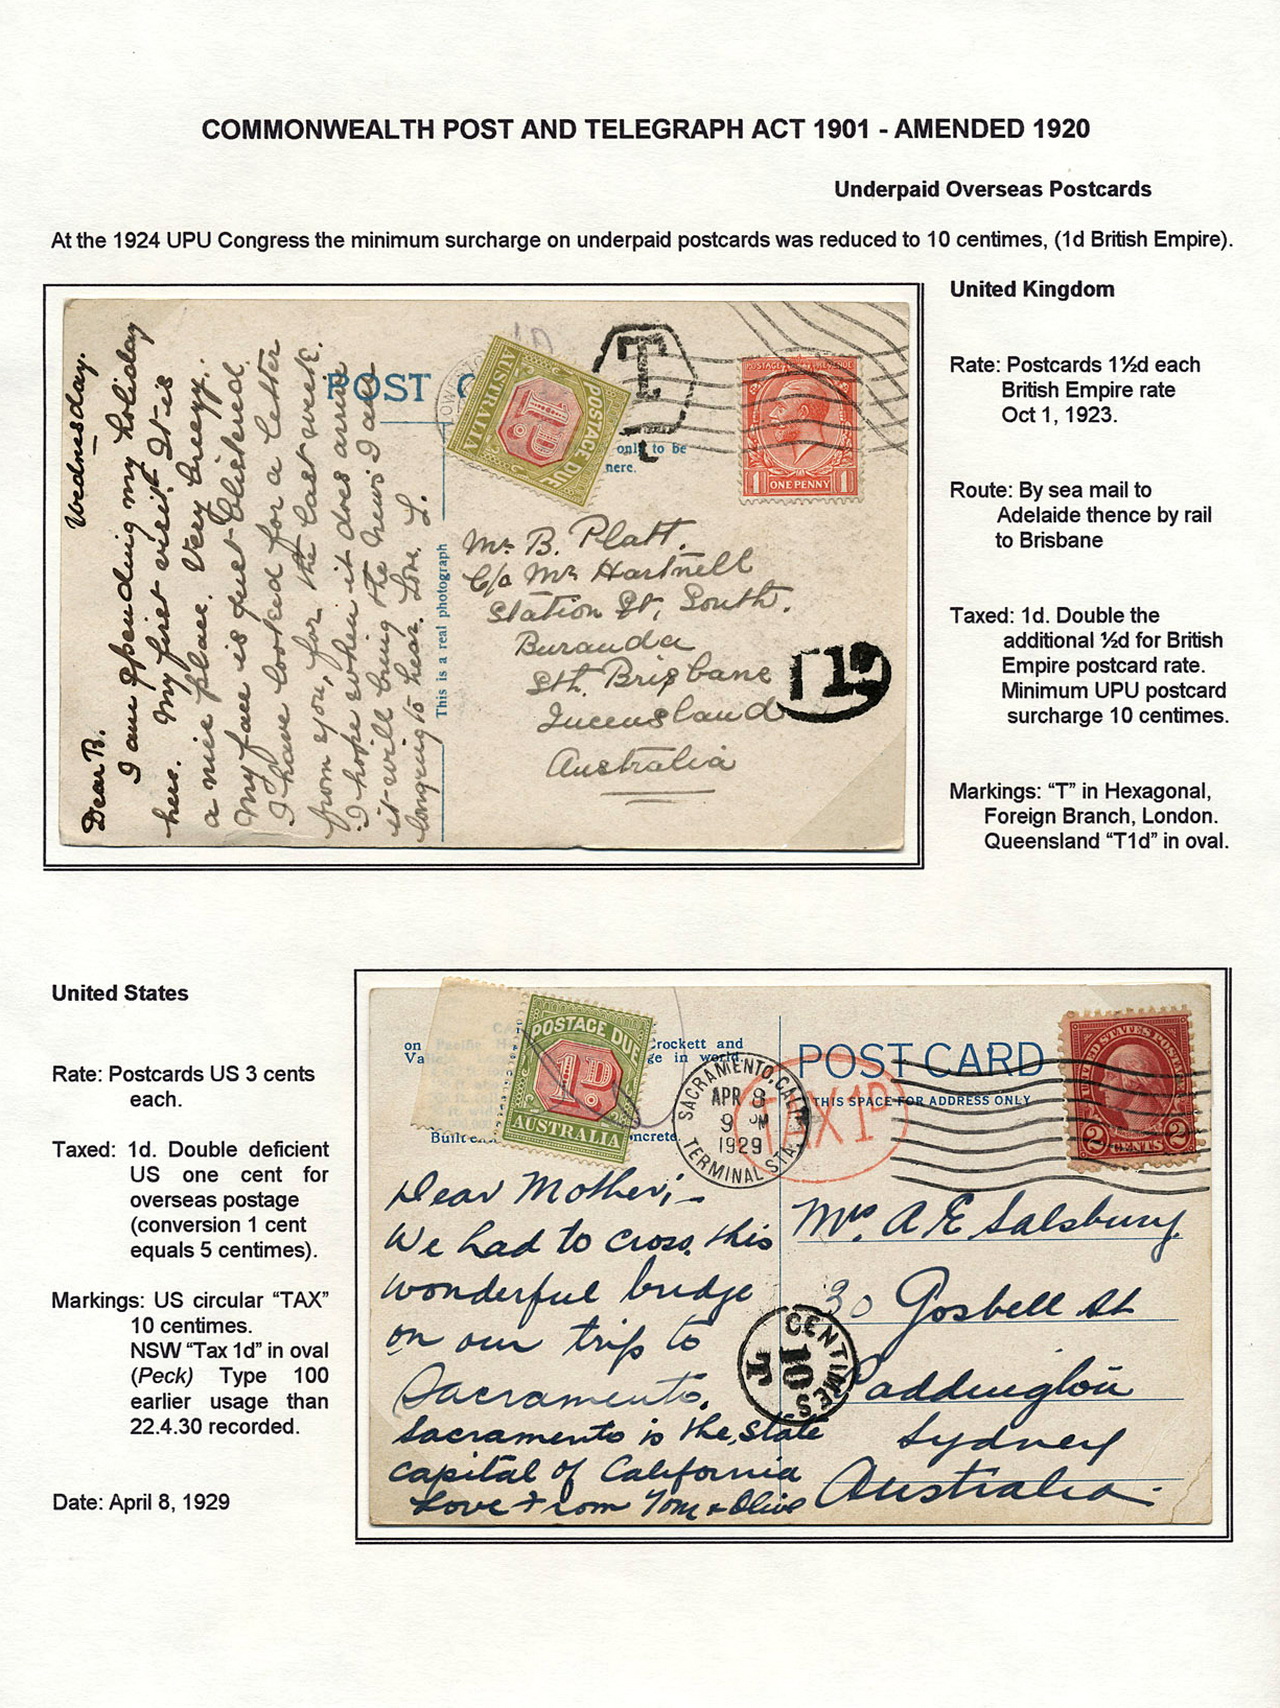 COMMONWEALTH POST AND TELEGRAPH ACT 1901 - AMENDED 1920
Underpaid Overseas Postcards
At the 1924 UPU Congress the minimum surcharge on underpaid postcards was reduced to 10 centimes, (1d British Empire).
United Kingdom
Rate: Postcards 1½d each
British Empire rate
Oct 1, 1923.
Route: By sea mail to
Adelaide thence by rail
to Brisbane
Taxed: 1d. Double the
additional ½d for British
Empire postcard rate.
Minimum UPU postcard
surcharge 10 centimes.
Markings: “T” in Hexagonal,
Foreign Branch, London.
Queensland “T1d” in oval.
Wednesday.
Dear B.
I am spending my holiday
here. My first visit. It is
a nice place. Very breezy.
My face is quet blistered.
I have looked for a letter
from you, for the last week.
I hope when it does arrive
it will bring the news I am
longing to hear. Love. L.
POST C
This is a real photograph
only to be
here.
POSTAGE DUE
1D.
AUSTRALIA
T
L
POSTAGE REVENUE
1 ONE PENNY 1
Mr. B. Platt.
C/o Mr Hartnell
Station St, South.
Buranda
Sth. Brisbane
Queensland
Australia
T 1D
United States
Rate: Postcards US 3 cents
each.
Taxed: 1d. Double deficient
US one cent for
overseas postage
(conversion 1 cent
equals 5 centimes).
Markings: US circular “TAX”
10 centimes.
NSW “Tax 1d” in oval
(Peck) Type 100
earlier usage than
22.4.30 recorded.
Date: April 8, 1929
on Pacific
Crockett and
ge in world.
Built
ncrete.
POSTAGE DUE
1D.
AUSTRALIA
SACRAMENTO, CALIF.
APR 8
9 PM
1929
TERMINAL STA.
TAX 1D
POST CARD
THIS SPACE FOR ADDRESS ONLY
UNITED STATES POSTAGE
2 CENTS 2
Dear Mother;-
We had to cross this
wonderful bridge
on our trip to
Sacramento.
Sacramento is the State
capital of California
Love From Tom & Olive
Mrs. A E Salsbury.
30 Gosbell St
Paddington
Sydney
Australia.
CENTIMES
10
T